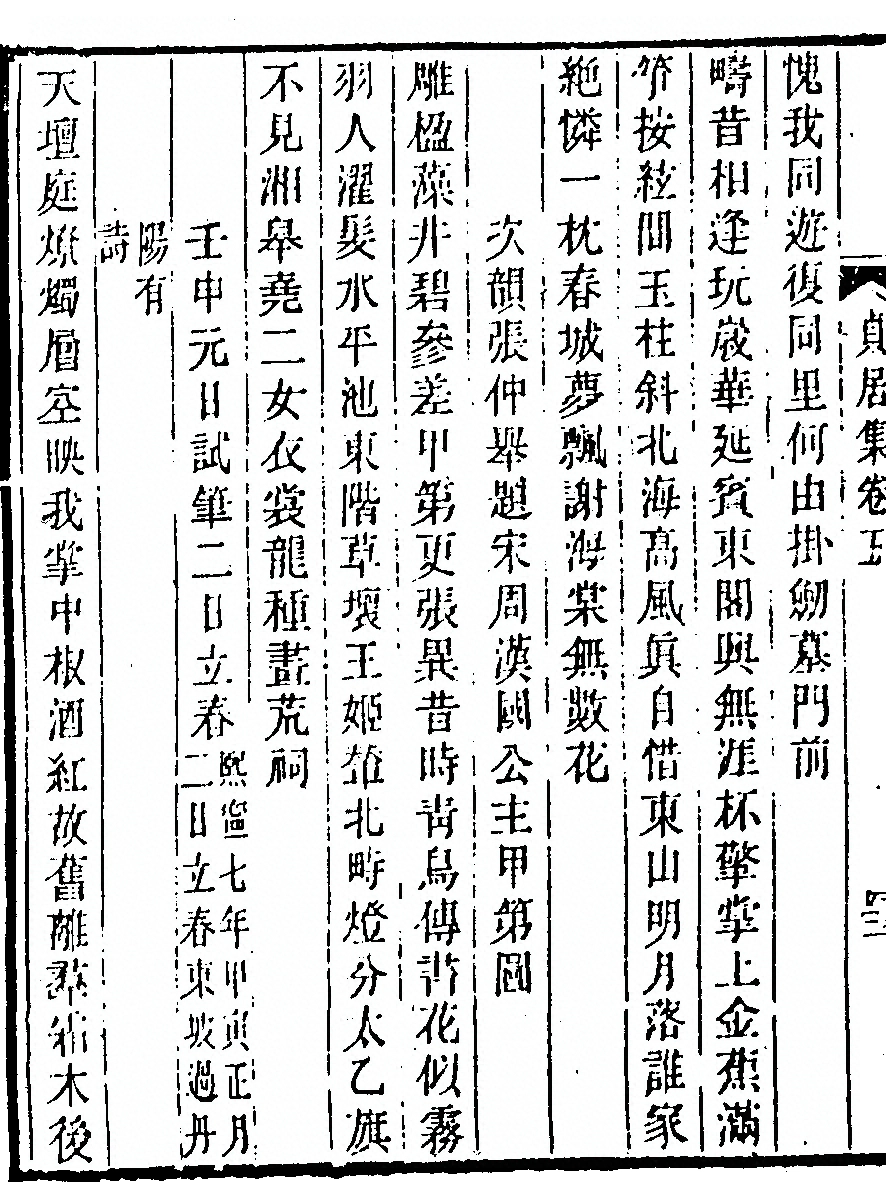 貞居集卷五
三
愧我同遊復同里何由掛劒墓門前
疇昔相逢玩歲華延賓東閣興無涯杯擎掌上金蕉滿
箏按絃間玉柱斜北海高風眞自惜東山明月落誰家
絶憐一枕春城夢飄謝海棠無數花
次韻張仲舉題宋周漢國公主甲第圖
雕楹藻井碧參差甲第更張異昔時靑鳥傳書花似霧
羽人濯髮水平池東階草壞王姬北畤燈分太乙旗
不見湘皋堯二女衣裳龍種畫荒祠
壬申元日試筆二日立春
熙寧七年甲寅正月
二日立春東坡過丹
陽有
詩
天壇庭燎燭層空映我掌中椒酒紅故舊離羣木後